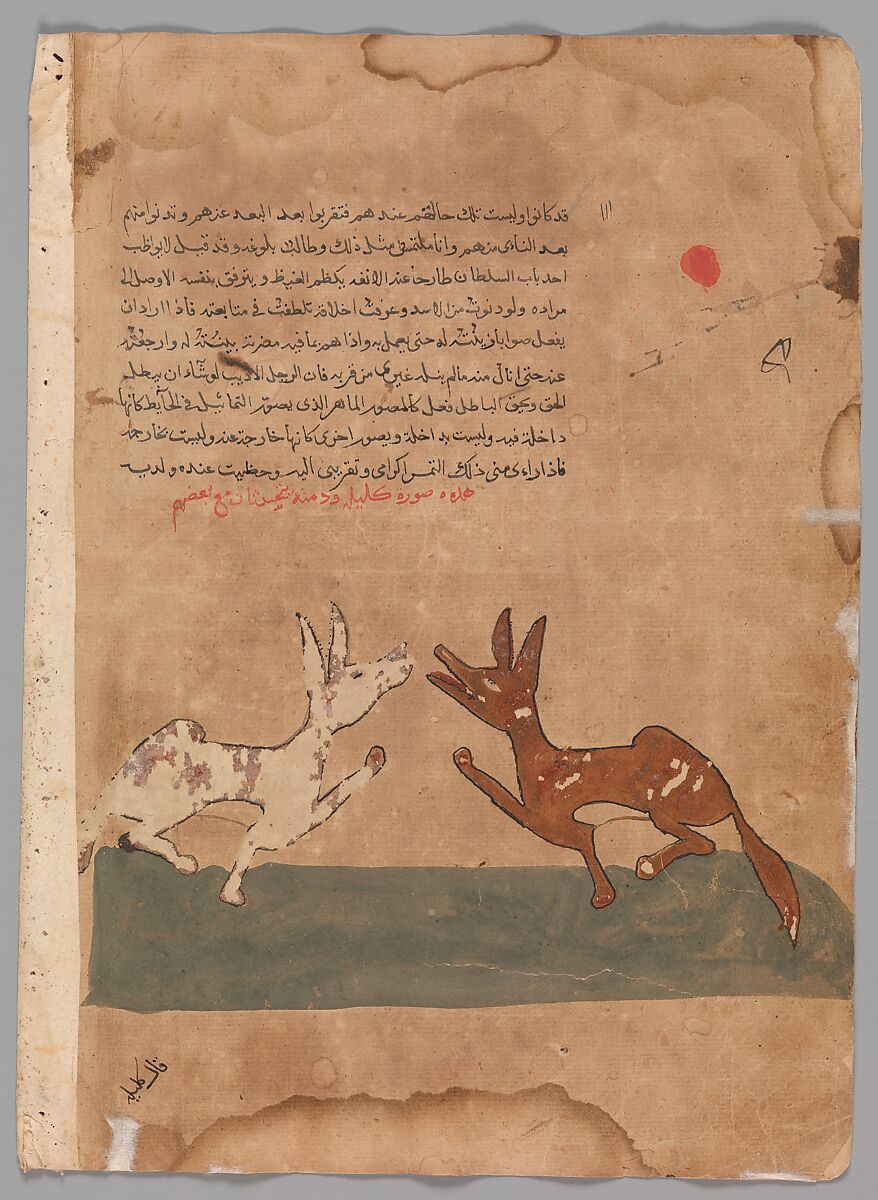 قد كانوا وليست تلك حالتهم عندهم فتقربوا بعد البعد عنهم وتدنوا منهم
بعد النأى منهم وانا ملتمس مثل ذلك وطالب بلوغه وقد قيل لا يواظب
احد باب السلطان طارحا عنه الانفه يكظم الغيظ ويترفق بنفسه الا وصل الى
مراده ولو دنوت من الاسد وعرفت اخلاقه تلطفت فى متابعته فاذا اراد ان
يفعل صوابا زينته له حتى يعمل به واذا هم بما فيه مضرته بينته له وارجعته
عنه حتى انال منه مالم ينله غيرى من قربه فان الرجل الاديب لو شاء ان يبطل
الحق ويحق الباطل فعل كالمصور الماهر الذى يصور التماثيل فى الحايط كانها
داخلة فيه وليست بداخلة ويصور اخرى كانها خارجة عنه وليست بخارجة
فاذا راى منى ذلك التمس اكرامى وتقريبى اليه وحظيت عنده ولديه
هذه صورة كليله ودمنه يتحدثان مع بعضهم
قال كليله